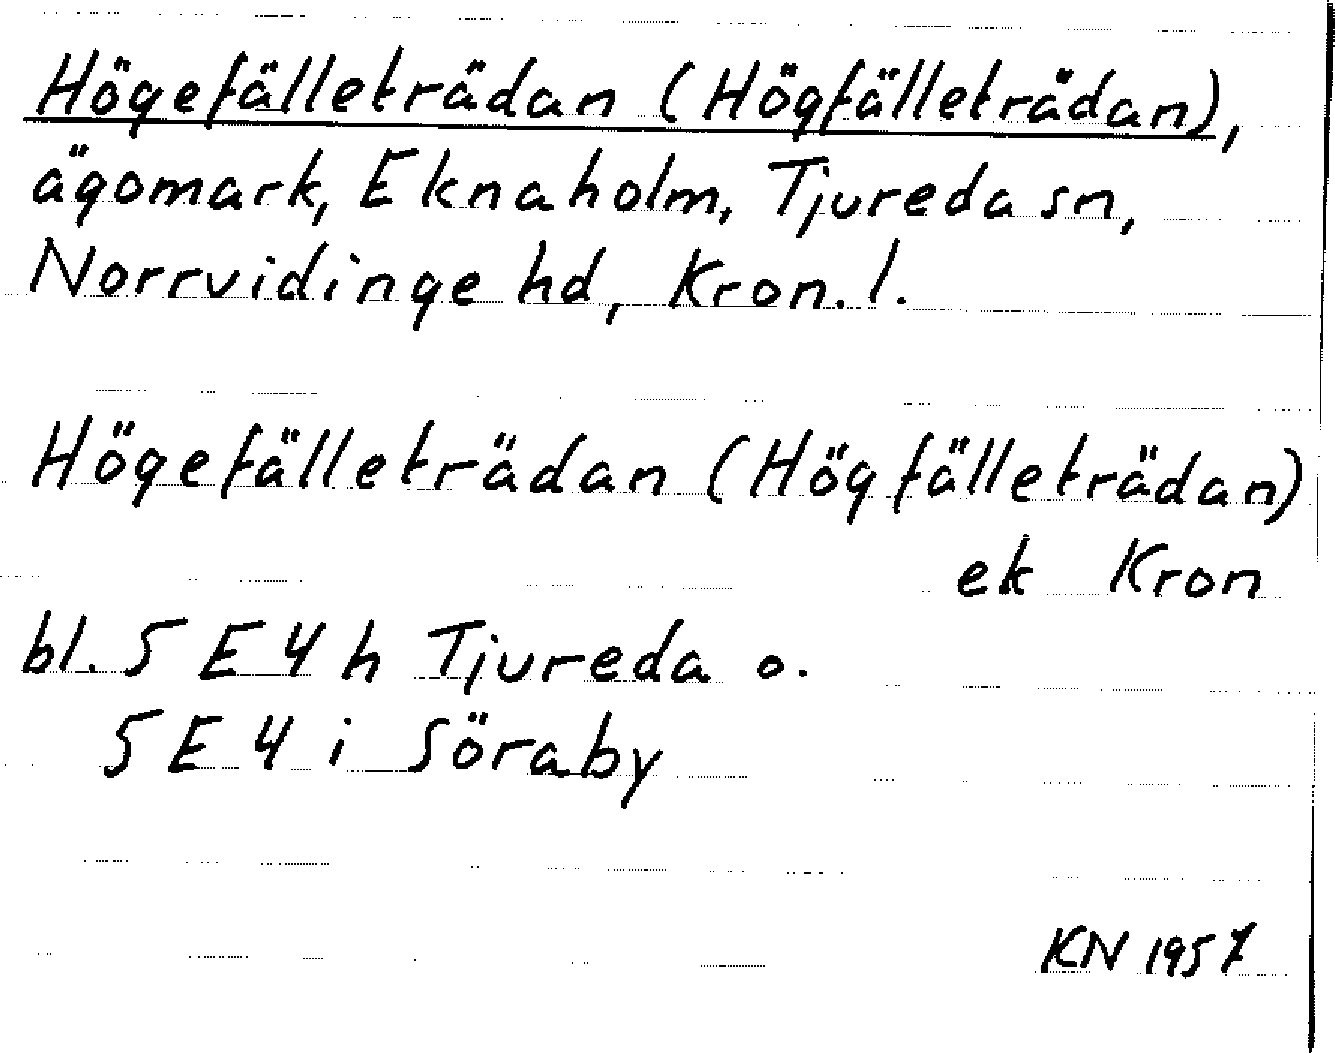 Högefälleträdan (Högfälleträdan),
ägomark, Eknaholm, Tjureda sn,
Norrvidinge hd, Kron. l.
Högefälleträdan (Högfälleträdan)
ek Kron
bl. 5 E 4 h Tjureda o.
5 E 4 i Söraby
KN 1957